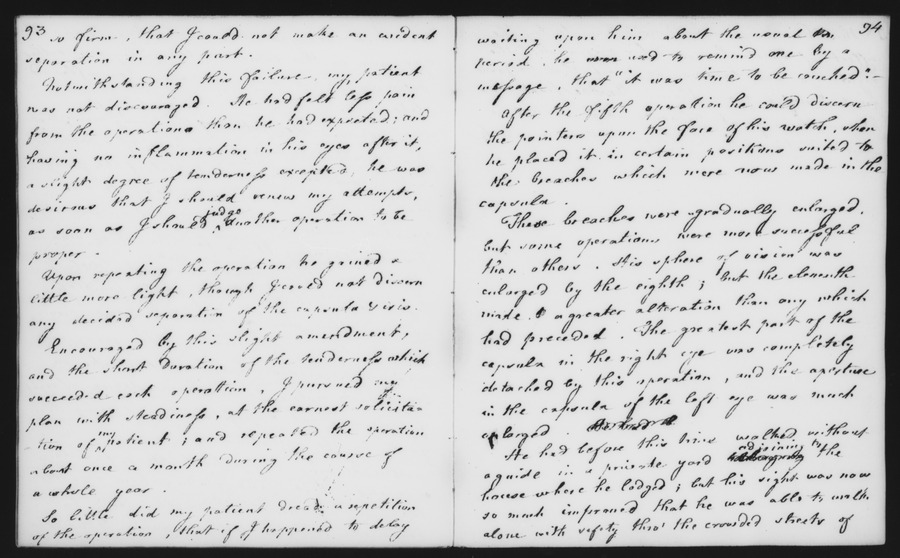 93
so firm, that I could not make an evident
separation in any part.
Notwithstanding this failure, my patient
was not discouraged. He had felt less pain
from the operations than he had expected; and
having no inflammation in his eyes after it,
a slight degree of tenderness excepted, he was
desirous that I should renew my attempts,
as soon as I should judge another operation to be
proper.
Upon repeating the operation he gained a
little more light, though I could not discern
any decided separation of the capsula & iris.
Encouraged by this slight amendment,
and the short duration of the tenderness which
succeeded each operation, I pursued my
plan with steadiness, at the earnest solicita-
tion of my patient; and repeated the operation
about once a month during the course of
a whole year.
So little did my patient dread a repetition
of the operation, that if I happened to delay
94
waiting upon him about the usual
period, he used to remind me by a
message, that "it was time to be couched".-
After the fifth operation he could discern
the pointers upon the face of his watch, when
he placed it in certain positions suited to
the breaches which were now made in the
capsula.
These breaches were gradually enlarged,
but some operations were more successful
than others. His sphere of vision was
enlarged by the eighth; but the eleventh
made a greater alteration than any which
had preceded. The greatest part of the
capsula in the right eye was completely
detached by this operation, and the aperture
in the capsula of the left eye was much
enlarged
He had before this time walked without
a guide in a private yard adjoining to the
house where he lodged; but his sight was now
so much improved that he was able to walk
alone with safety thro' the crowded streets of